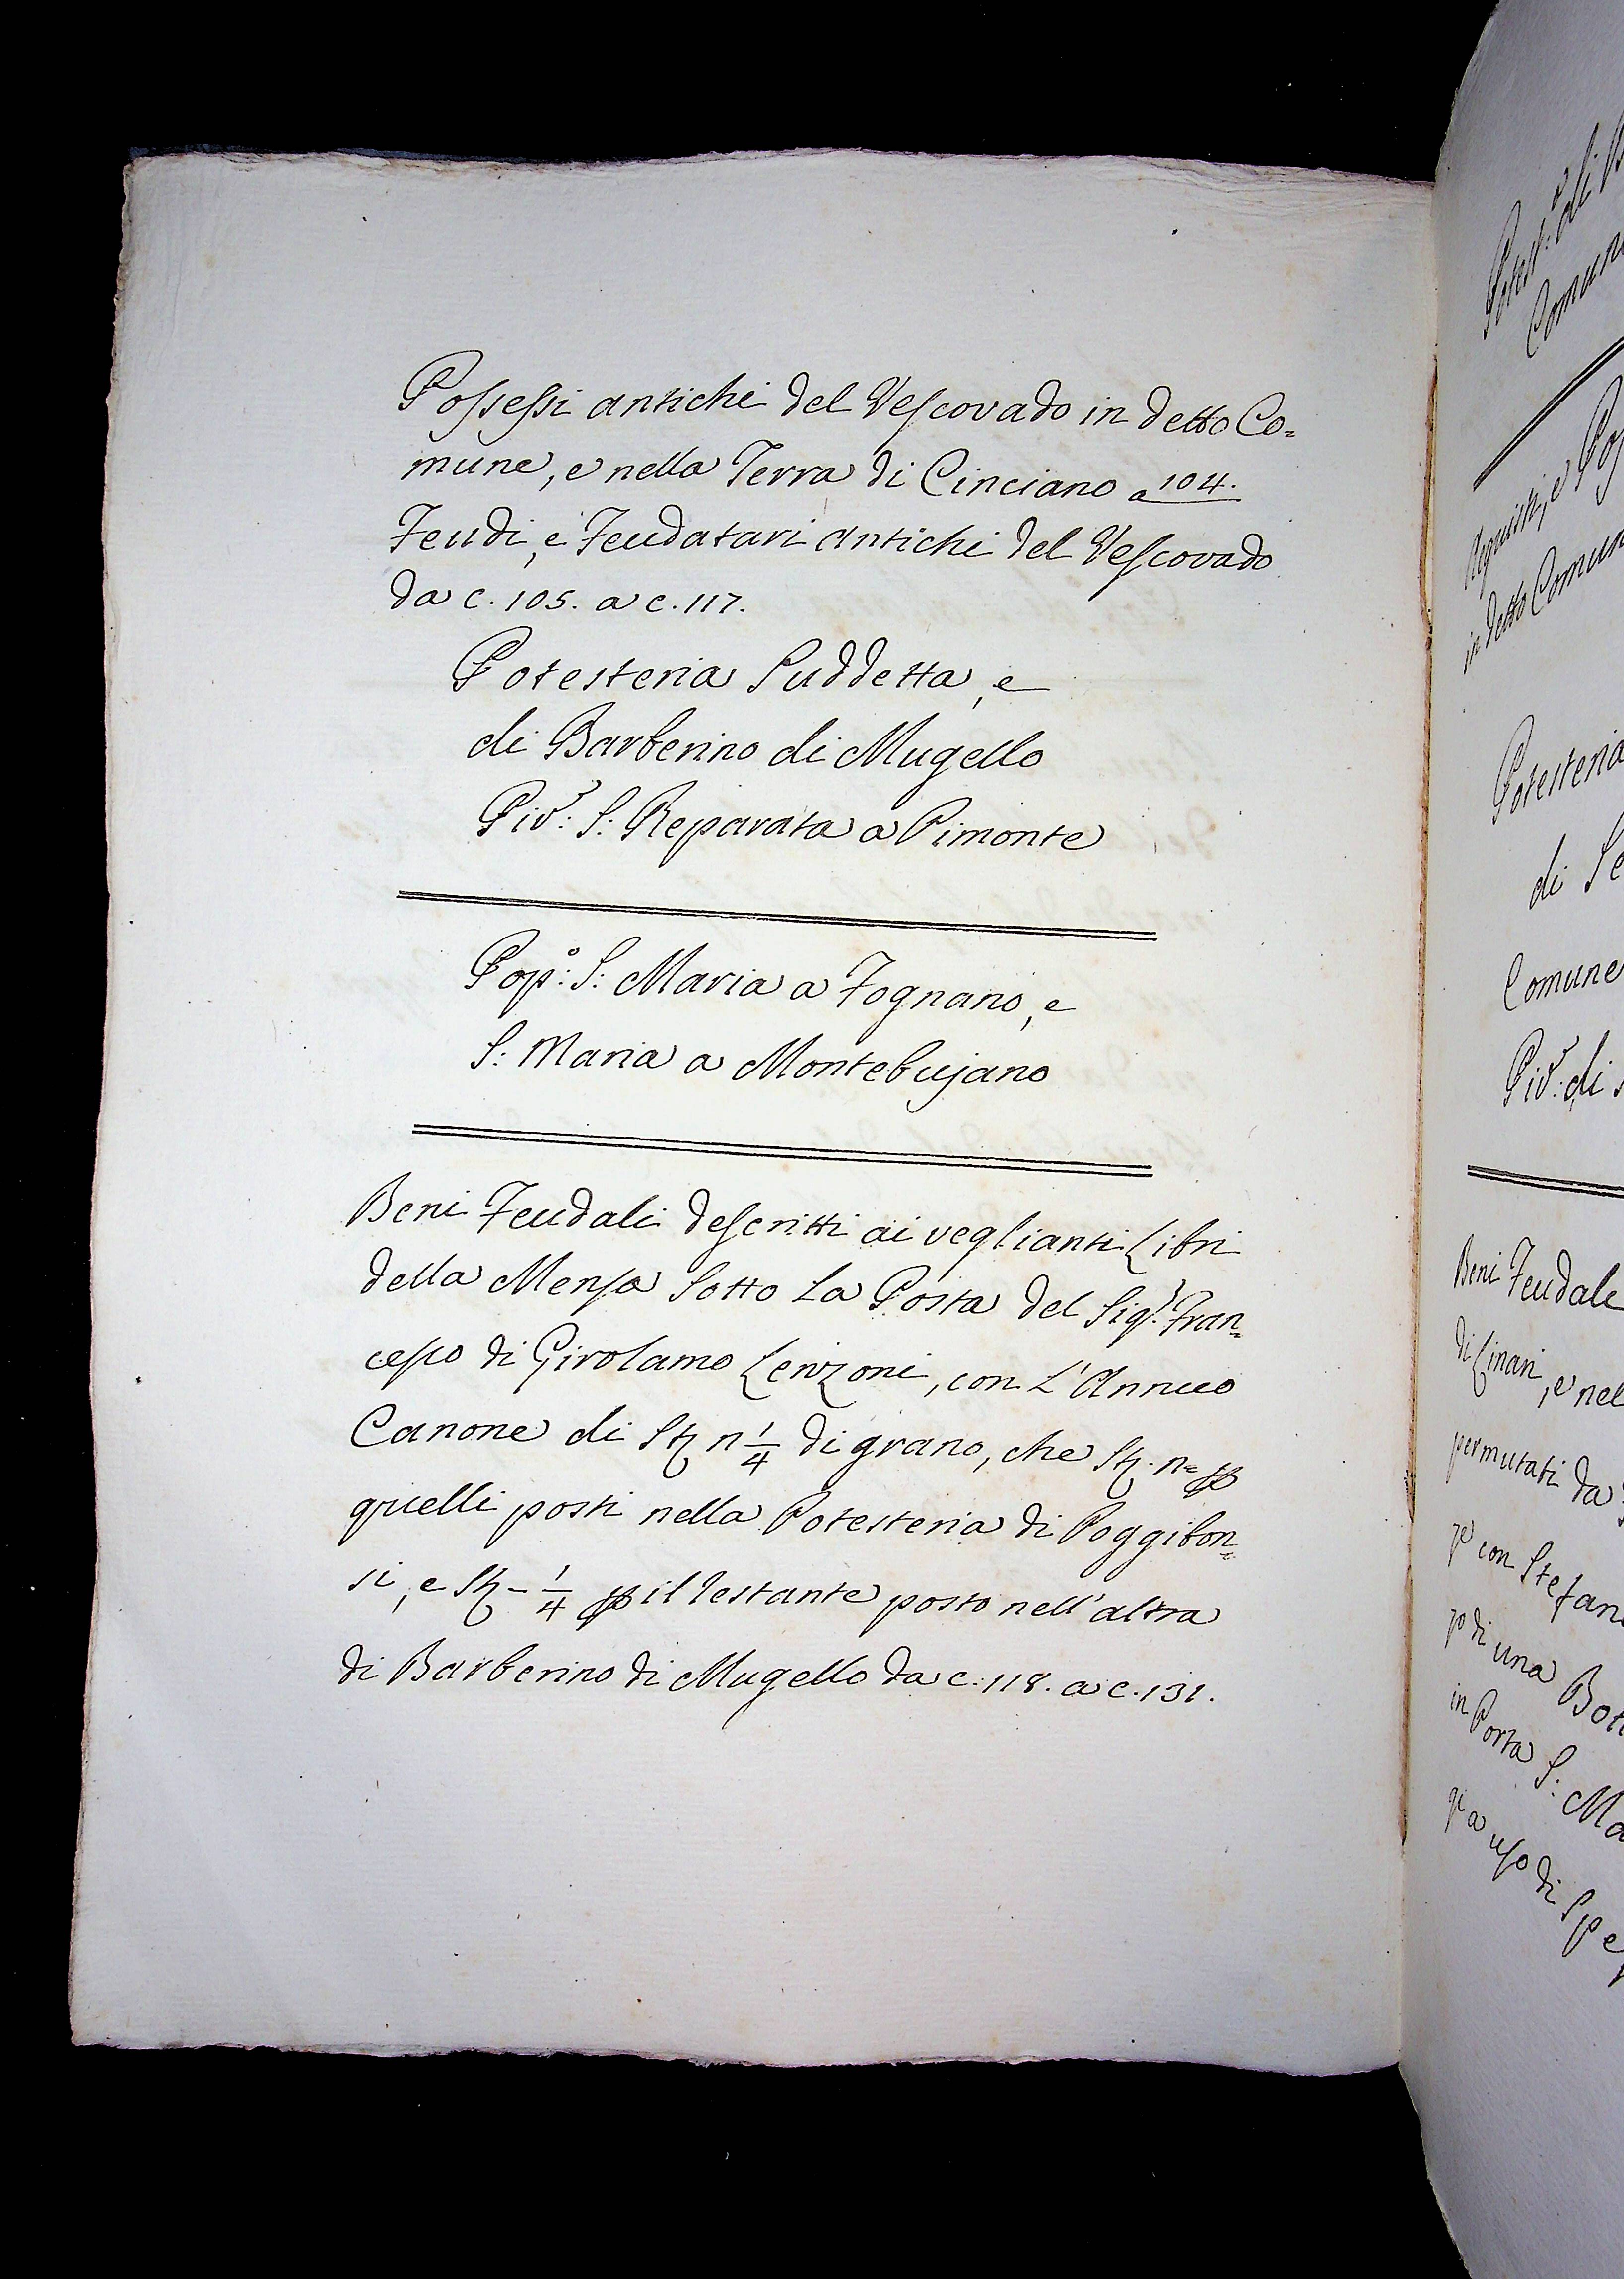 Possessi antichi del Vescovado in detto Co=
mune, e nella Terra di Cinciano a 104.
Feudi, e Feudatari antichi del Vescovado
da c. 105. a c. 117.
Potesteria Suddetta, e
di Barberino di Mugello
Piv.^e: S: Reparata a Pimonte
Pop.^o: S: Maria a Fognano, e
S: Maria a Montebujano
Beni Feudali descritti ai veglianti Libri
della Mensa Sotto La Posta del Sig.^r Fran=
cesco di Girolamo Lenzoni, con L'Annuo
Canone di St n 1/4 di grano, che St. n=
quelli posti nella Potesteria di Poggibon=
si, e St - 1/4 il restante posto nell'altra
di Barberino di Mugello da c. 118. a c. 131.
Potest: di
Comun
Acquisti, e
in detto Comun
Potesteria
di Se
Comune
Piv: di
Beni Feudale
di Linari, e nel
permutati da
con Stefan
di una Bott
in Porta S: Ma
uso di Spe